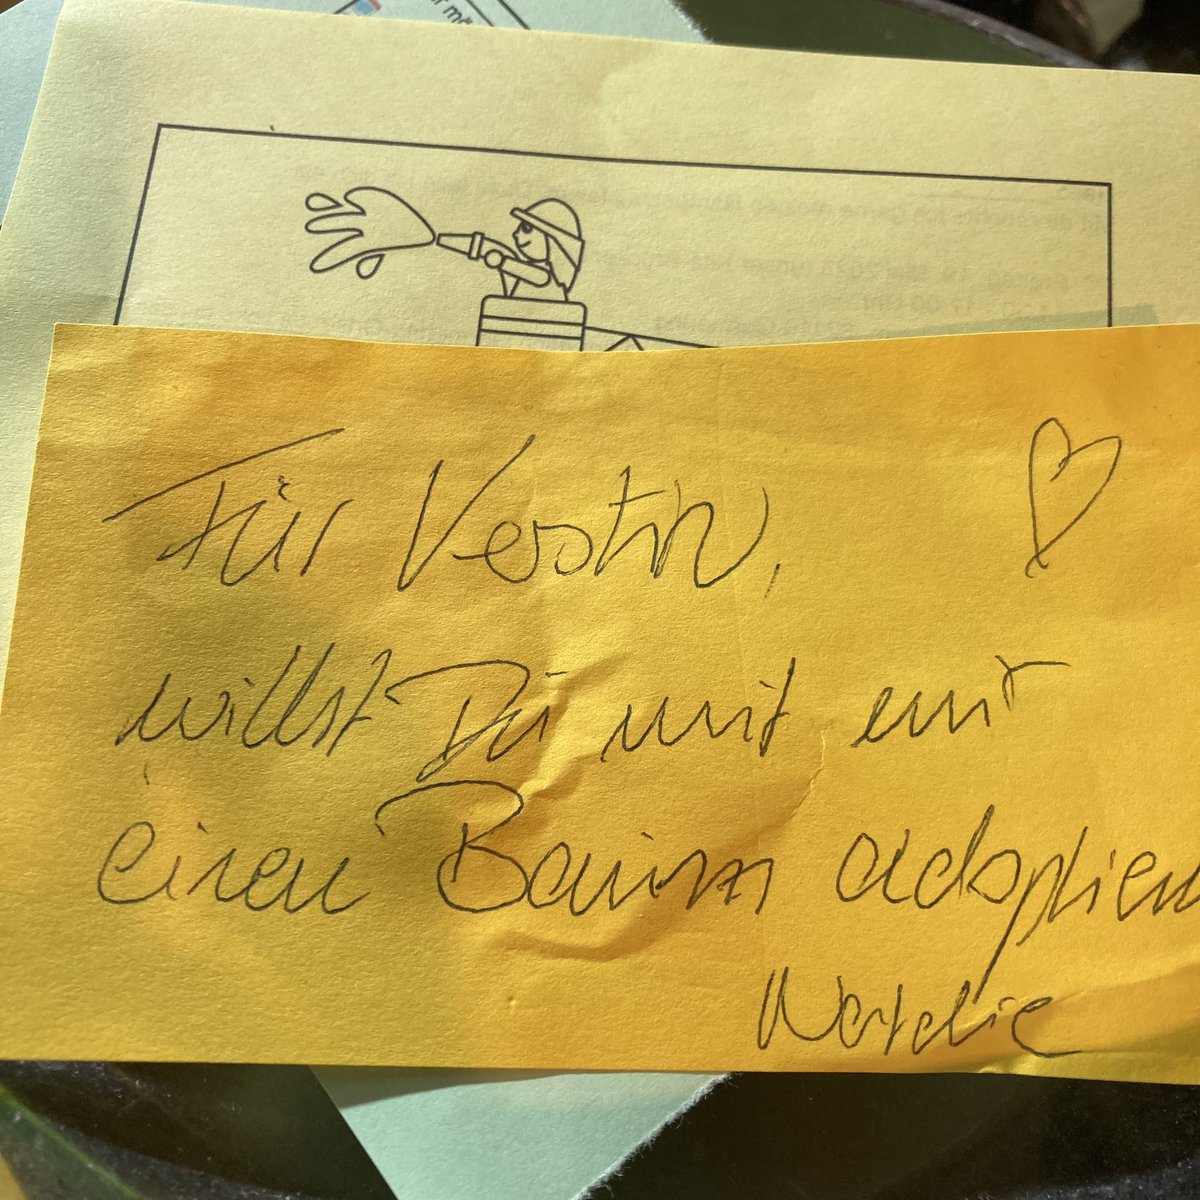 Für Kerstin,
willst Du mit mir
einen Baum adoptieren
Natalie